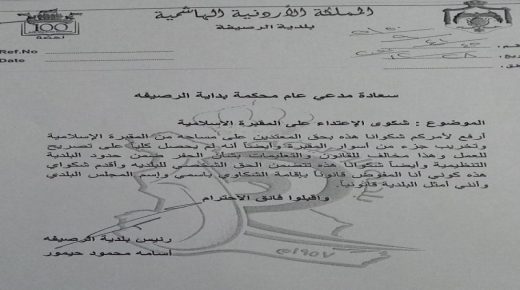 المملكة الأردنية الهاشمية
بلدية الرصيفة
100
Ref.No
Date
سعادة مدعي عام محكمة بداية الرصيفه
الموضوع : شكوى الإعتداء على المقبرة الاسلامية
أرفع لأمركم شكوانا هذه بحق المعتدين على مساحه من المقبرة الإسلامية
وتخريب جزء من أسوار المقبرة وأيضاً أنه لم يحصل كلياً على تصريح
للعمل وهذا مخالف للقانون والتعليمات بشأن الحفر ضمن حدود البلدية
التنظيمية وأيضاً شكوانا هذه تتضمن الحق الشخصي للبلديه وأقدم شكواي
هذه كوني أنا المفوض قانوناً بإقامة الشكاوي باسمي وإسم المجلس البلدي
وأنني أمثل البلدية قانونياً.
واقبلوا فائق الأحترام
رئيس بلدية الرصيفه
أسامه محمود حيمور
١٩٥٧م